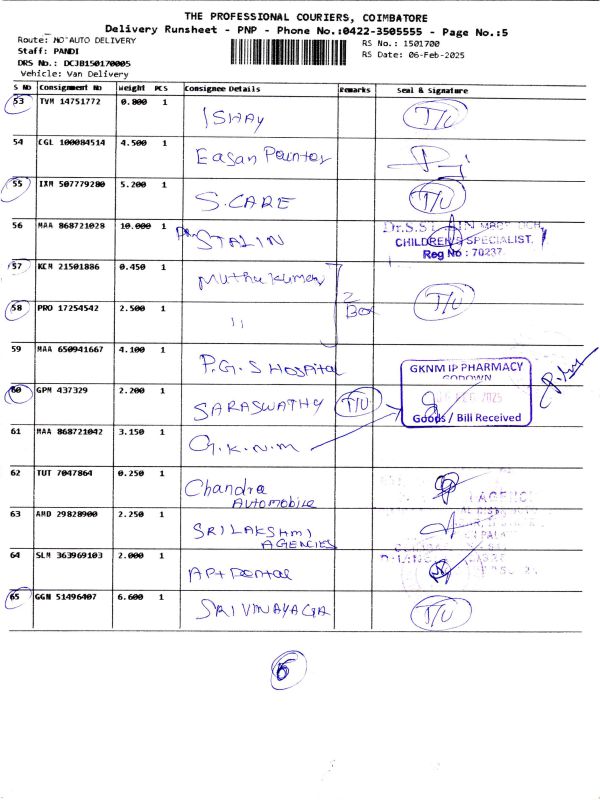 THE PROFESSIONAL COURIERS, COIMBATORE
Delivery Runsheet - PNP - Phone No.:0422-3505555 - Page No.:5
Route: NO AUTO DELIVERY
RS No.: 1501700
Staff: PANDI
RS Date: 06-Feb-2025
DRS No.: DCJB150170005
Vehicle: Van Delivery
S No Consignment No Weight PCS Consignee Details Remarks Seal & Signature
53 TVM 14751772 0.800 1 ISHAY T/U
54 CGL 100084514 4.500 1 Easan Painter
55 IXM 507779280 5.200 1 S.CARE T/U
56 MAA 868721028 10.000 1 DR. STALIN
CHILDREN'S SPECIALIST.
Reg No : 70237
57 KCM 21501886 0.450 1 Muthu Kumar T/U
2 Box
58 PRO 17254542 2.500 1 "
59 MAA 650941667 4.100 1 P.G.S Hospital
GKNM IP PHARMACY
GODOWN
60 GPM 437329 2.200 1 SARASWATHY T/U
2025
Goods / Bill Received
61 MAA 868721042 3.150 1 G.K.N.M
62 TUT 7047864 0.250 1 Chandra
Automobile
63 AMD 29828900 2.250 1 SRI LAKSHMI
AGENCIES
64 SLM 363969103 2.000 1 Apt Dental
65 GGN 51496407 6.600 1 SRI VINAYAGA T/U